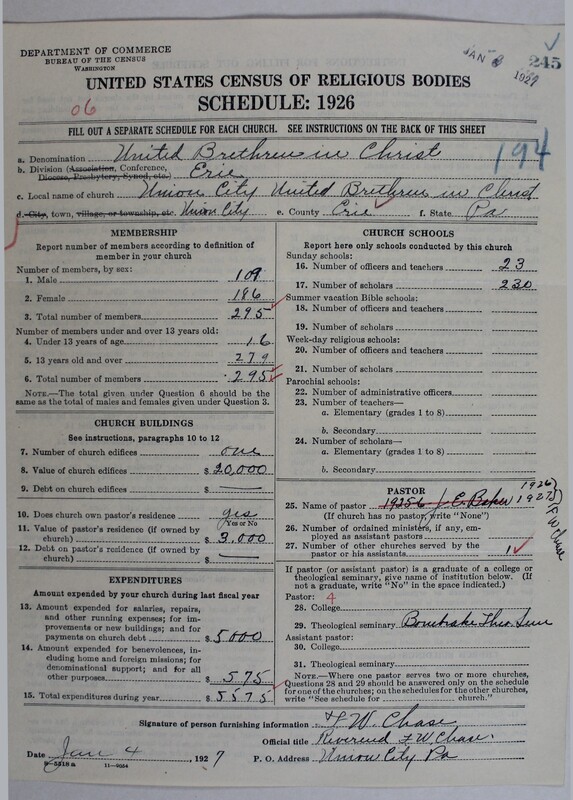 DEPARTMENT OF COMMERCE
BUREAU OF THE CENSUS
WASHINGTON
JAN 8 1927
245
UNITED STATES CENSUS OF RELIGIOUS BODIES
SCHEDULE: 1926
06
FILL OUT A SEPARATE SCHEDULE FOR EACH CHURCH. SEE INSTRUCTIONS ON THE BACK OF THIS SHEET
194
a. Denomination United Brethren in Christ
b. Division (Association, Conference, Diocese, Presbytery, Synod, etc.) Erie
c. Local name of church Union City United Brethren in Christ
d. City, town, village, or township, etc. Union City e. County Erie f. State Pa
MEMBERSHIP
Report number of members according to definition of member in your church
Number of members, by sex:
1. Male 109
2. Female 186
3. Total number of members 295
Number of members under and over 13 years old:
4. Under 13 years of age 16
5. 13 years old and over 279
6. Total number of members 295
NOTE.—The total given under Question 6 should be the same as the total of males and females given under Question 3.
CHURCH BUILDINGS
See instructions, paragraphs 10 to 12
7. Number of church edifices one
8. Value of church edifices $ 20,000
9. Debt on church edifices $ —
10. Does church own pastor's residence yes
Yes or No
11. Value of pastor's residence (if owned by church) $ 3,000
12. Debt on pastor's residence (if owned by church) $ —
EXPENDITURES
Amount expended by your church during last fiscal year
13. Amount expended for salaries, repairs, and other running expenses; for improvements or new buildings; and for payments on church debt $ 5000
14. Amount expended for benevolences, including home and foreign missions; for denominational support; and for all other purposes $ 575
15. Total expenditures during year $ 5575
CHURCH SCHOOLS
Report here only schools conducted by this church
Sunday schools:
16. Number of officers and teachers 23
17. Number of scholars 230
Summer vacation Bible schools:
18. Number of officers and teachers
19. Number of scholars
Week-day religious schools:
20. Number of officers and teachers
21. Number of scholars
Parochial schools:
22. Number of administrative officers
23. Number of teachers—
a. Elementary (grades 1 to 8)
b. Secondary
24. Number of scholars—
a. Elementary (grades 1 to 8)
b. Secondary
PASTOR
25. Name of pastor J. E. Baker 1926 1927 F W Chase
(If church has no pastor, write "None")
26. Number of ordained ministers, if any, employed as assistant pastors
27. Number of other churches served by the pastor or his assistants 1
If pastor (or assistant pastor) is a graduate of a college or theological seminary, give name of institution below. (If not a graduate, write "No" in the space indicated.)
Pastor: 4
28. College
29. Theological seminary Bonebrake Theo. Sem
Assistant pastor:
30. College
31. Theological seminary
NOTE.—Where one pastor serves two or more churches, Questions 28 and 29 should be answered only on the schedule for one of the churches; on the schedules for the other churches, write "See schedule for church."
Signature of person furnishing information F W. Chase
Official title Reverend F W. Chase.
Date Jan 4 1927 P. O. Address Union City Pa
11—9054